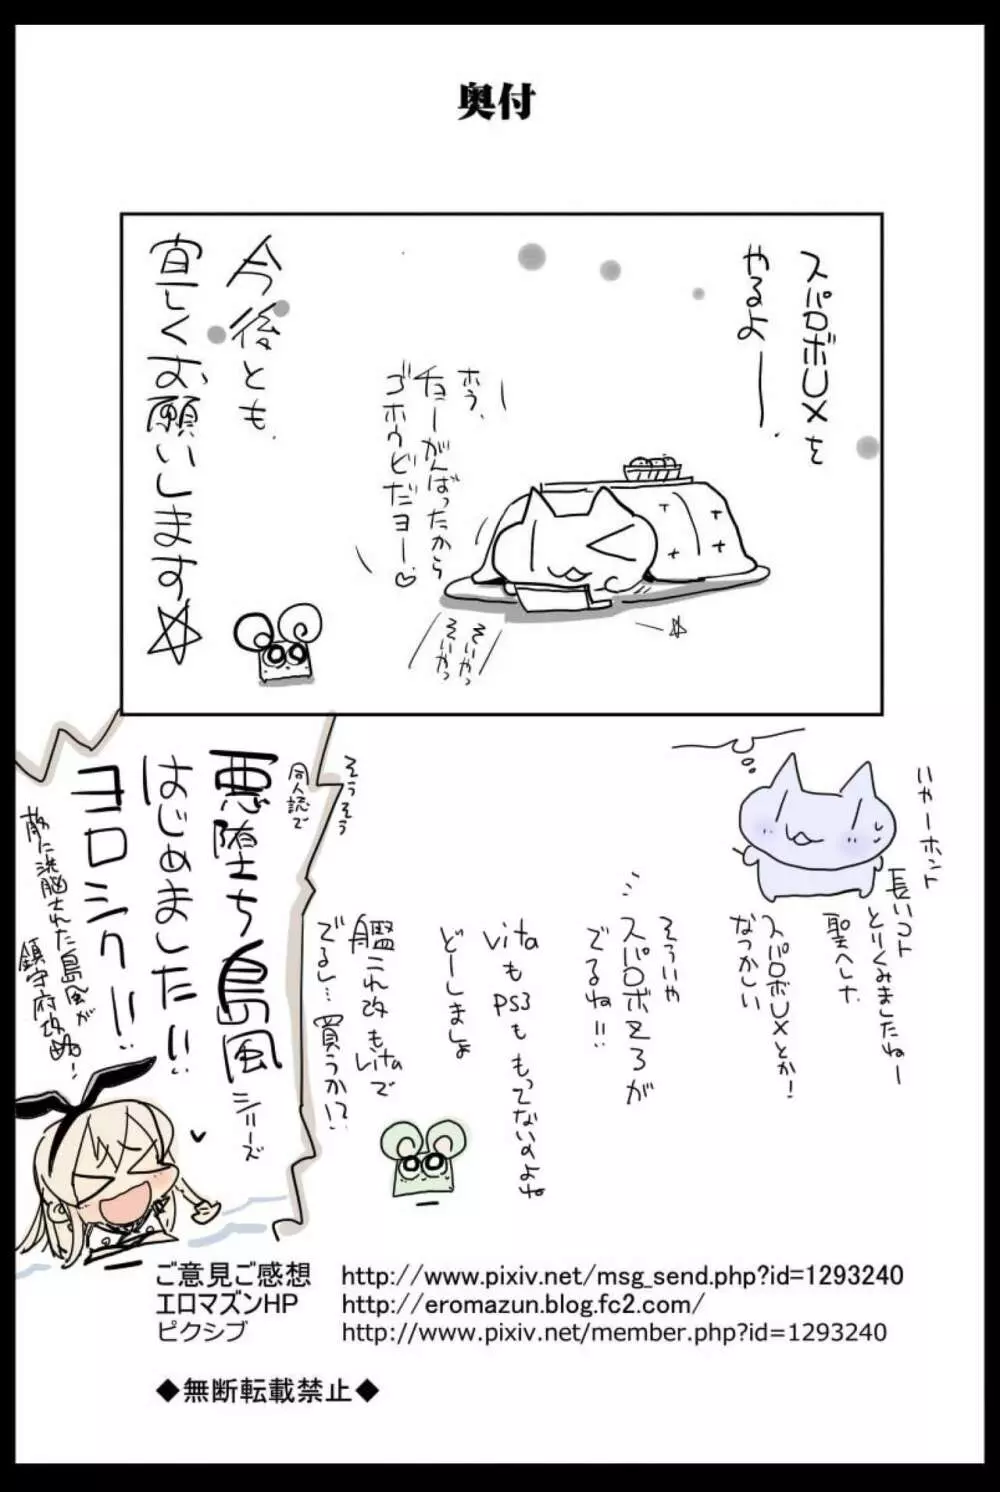 奥付
スパロボUXを
やるよー.
ホラ、
チョーがんばったから
ゴホウビだヨー.♡
そいやっ
そいやっ
今後とも.
宜しくお願いします☆
いやーホント
長いコト
とりくみましたねー
聖天へした
スパロボUXとか!
なつかしい
そういや
スパロボZ3が
でるね!!
vitaもPS3ももってないのよね
どーしましょ
艦これ改もvitaで
でるし…買うか!?
そうそう
同人誌で
悪堕ち島風シリーズ
はじめました!!
ヨロシク!!
敵に洗脳された島風が
鎮守府攻略!
ご意見ご感想 http://www.pixiv.net/msg_send.php?id=1293240
エロマズンHP http://eromazun.blog.fc2.com/
ピクシブ http://www.pixiv.net/member.php?id=1293240
◆無断転載禁止◆